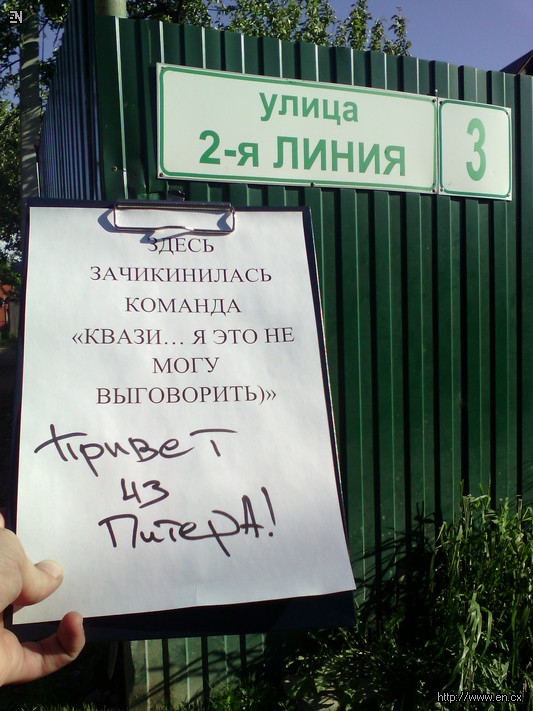 EN
улица
2-я ЛИНИЯ
3
ЗДЕСЬ
ЗАЧИКИНИЛАСЬ
КОМАНДА
«КВАЗИ... Я ЭТО НЕ
МОГУ
ВЫГОВОРИТЬ)»
Привет
из
ПитерА!
http://www.en.cx